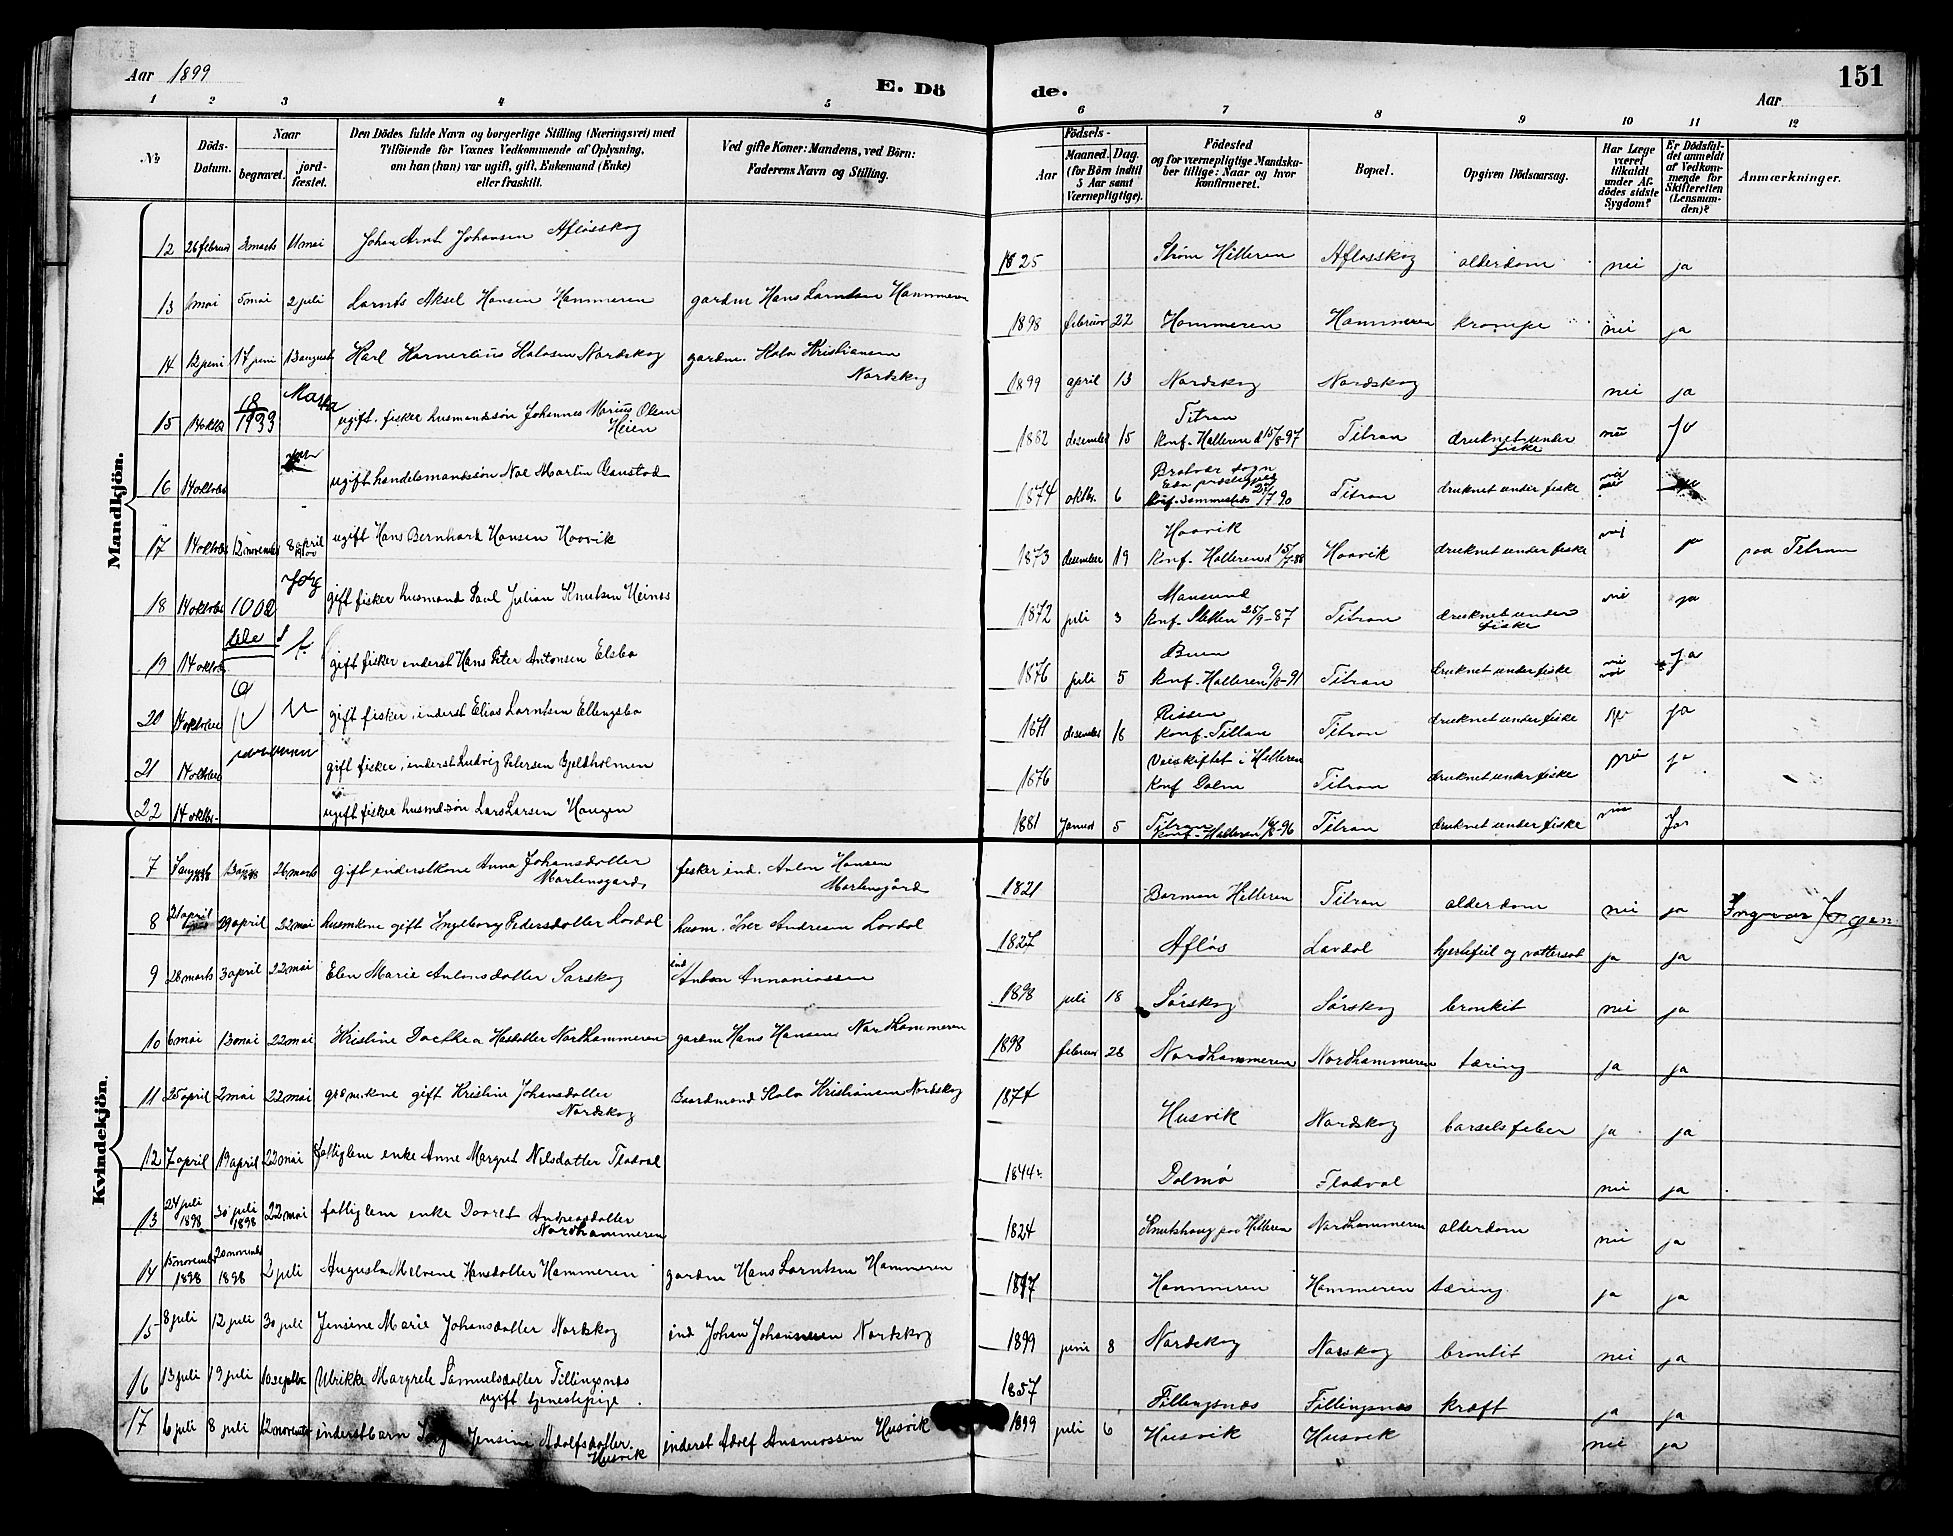 Aar 1899
E. Dö
de.
Aar
151
1 2 3 4 5 6 7 8 9 10 11 12
№
Döds-Datum.
Naar
begravet.
jord-fæstet.
Den Dödes fulde Navn og borgerlige Stilling (Næringsvei) med
Tilföiende for Voxnes Vedkommende af Oplysning,
om han (hun) var ugift, gift, Enkemand (Enke)
eller fraskilt.
Ved gifte Koner: Mandens, ved Börn:
Faderens Navn og Stilling.
Födsels-
Aar
Maaned. Dag.
(for Börn indtil
5 Aar samt
Værnepligtige).
Födested
og for værnepligtige Mandska-
ber tillige: Naar og hvor
konfirmeret.
Bopæl.
Opgiven Dödsaarsag.
Har Læge
været
tilkaldt
under Af-
dödes sidste
Sygdom?
Er Dödsfal-
det anmeldt
af Vedkom-
mende for
Skifteretten
(Lensman-
den)?
Anmærkninger.
Mandkjön.
12 26 februar 2 marts 11 mai Johan Arnt Johansen Afløsskog 1825 Strøm Hitteren Afløsskog alderdom nei ja
13 1 mai 5 mai 2 juli Larnts Aksel Hansen Hammeren gardm Hans Larntsen Hammeren 1898 februar 22 Hammeren Hammeren krampe nei ja
14 12 juni 17 juni 13 august Karl Kornerlius Kristiansen
Nordskog 1899 april 13 Nordskog Nordskog nei ja
15 14 oktbr 18
1933 ugift. fisker husmandsøn Johannes Marius Olsen
Heien 1882 desember 15 Titran
konf. Halleren d 15/8-97 Titran druknet under
fiske nei ja
16 14 oktober ugift handelsmandssøn Martin Gaustad 1874 oktbr. 6 Titran druknet under fiske nei
17 14 oktober 12 november 8 april
1900 ugift Hans Bernhard Hansen Haavik 1873 desember 19 Haavik
konf. Halleren Haavik druknet under fiske nei ja paa Titran
18 14 oktober gift fisker husmand Paul Julian Knutsen 1872 juli 3 konf. Sletten Titran druknet under
fiske nei ja
19 14 oktober gift fisker inderst Hans Peter Antonsen Elsbø 1876 juli 5 konf. Halleren 9/8-91 Titran druknet under fiske nei ja
20 14 oktober gift fisker, inderst Elias Larntsen Ellingsbø desember 16 Rissen
konf. Titran druknet under fiske ja
21 14 oktober gift fisker, inderst Ludvig Petersen Gjeldholmen 1876 i Hitteren
konf Dolm Titran druknet under fiske nei ja
22 14 oktbr. ugift fisker husmdsøn Lars Larsen Haugen 1881 Januar 5 Titran
konf. Halleren Titran druknet under fiske nei ja
Kvindekjön.
7 7 august
1898 1898 26 marts gift inderstkone Anna Johansdatter
Martensgard fisker ind. Anton Hansen
Martensgård 1821 Barman Hitteren Titran alderdom nei ja Ingvar Jørgen
8 21 april 29 april 22 mai husmkone gift Ingeborg Pedersdatter Lovdal husm. Iver Andresen Lovdal 1827 Afløs Lavdal hjertefeil og vattersot ja ja
9 28 marts 3 april 22 mai Elen Marie Antonsdatter Sørskog ind
Anton Annaniassen 1898 juli 18 Sørskog Sørskog bronkit nei ja
10 6 mai 13 mai 22 mai Kristine Dorthea Nordhammeren gardm Hans Hansen Nordhammeren 1898 februar 28 Nordhammeren Nordhammeren tæring ja ja
11 25 april 2 mai 22 mai gift Kristine Johansdatter
Nordskog Kristiansen Nordskog 1874 Husvik Nordskog barselsfeber ja ja
12 7 april 19 april 22 mai fattiglem enke Anne Margret Nilsdatter Fladval 1844 Dolmø Fladval nei ja
13 24 juli
1898 30 juli
1898 22 mai fattiglem enke Andreasdatter
Nordhammeren 1824 Knutshaug paa Hitteren Nordhammeren alderdom nei ja
14 15 november
1898 20 november
1898 2 juli Augusta Hansdatter Hammeren gardm Hans Larntsen Hammeren Hammeren Hammeren tæring ja ja
15 8 juli 12 juli 30 juli Jensine Marie Johansdatter Nordskog ind Johan Johannesen Nordskog 1899 juni 8 Nordskog Norskog brontit nei ja
16 13 juli 19 juli Ulrikke Margrete Samuelsdatter Fillingsnæs
ugift tjenestepige 1857 Fillingsnæs Fillingsnæs kræft ja ja
17 6 juli 8 juli 12 november inderstbarn Jensine Adolfsdatter
Husvik inderst Adolf Husvik 1899 juli 6 Husvik Husvik nei ja